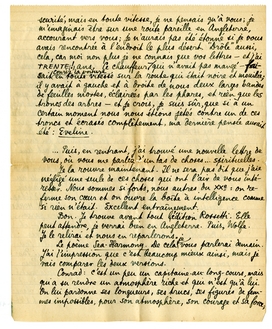 securité, mais en toute vitesse, je ne pensais qu'à vous: je
m'imaginais être sur une route pareille en Angleterre,
accourant vers vous; je n'aurais pas été étonné si je vous
avais rencontrée à l'endroit le plus désert "brôk" aussi,
cela, ca, moi non plus je ne connais que con lettre - et j'ai
TRENTE ans, le chauffeur qui n'avait pas
à toute vitesse sur la route qui était noire et mouillée,
il y avait à gauche et à droite de nous deux larges bandes
de feuilles mortes, éclairées par les phares, et rien que les
troncs des arbres - et je crois, je suis sûr, que si à un
certain moment nous nous étions jetés contre un de ces
troncs et écrasés complètement, ma dernière pensée aurait
été: Eveline.
... Puis, en rentrant, j'ai trouvé une nouvelle lettre de
vous, où vous me parlez d'un tas de choses... spirituelles.
Je la rouvre maintenant. Il ne sera pas dit que j'ai
négligé une seule de ces choses qui ont l'air de vous intéresser.
Nous sommes si forts, nous autres du XXe: on
ferme son cœur et on ouvre sa boîte à intelligence comme
si rien n'était. Excellent entraînement.
Bon. Je trouve avant tout l'édition Rossetti. Elle
peut attendre, je verrai bien en Angleterre. Puis, Wolfe.
Je le relirai et nous en reparlerons.
Le poème Sea-Harmony, de cela vous parlerai demain.
J'ai l'impression que c'est beaucoup mieux ainsi, mais je
vais comparer les deux versions.
Conrad: c'est un peu un capitaine au long-cours, mais
qui a su rendre un atmosphère rude et qui n'est qu'à lui.
On lui pardonne ses longueurs, ses trucs, ses figures de femmes
impossibles, pour son atmosphère, son courage et sa force,